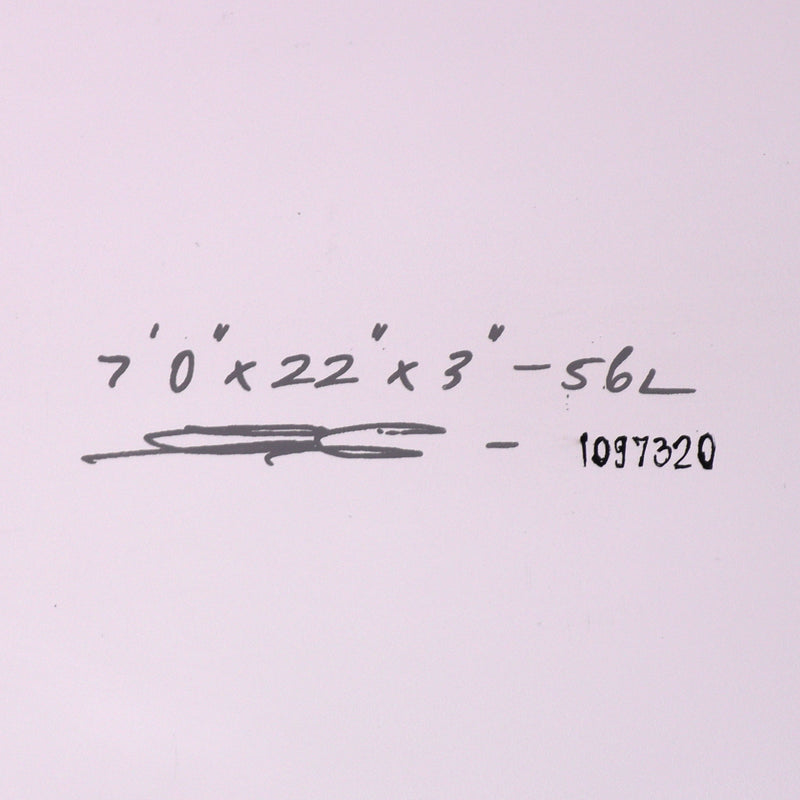 7'0" x 22" x 3" - 56L
- 1097320